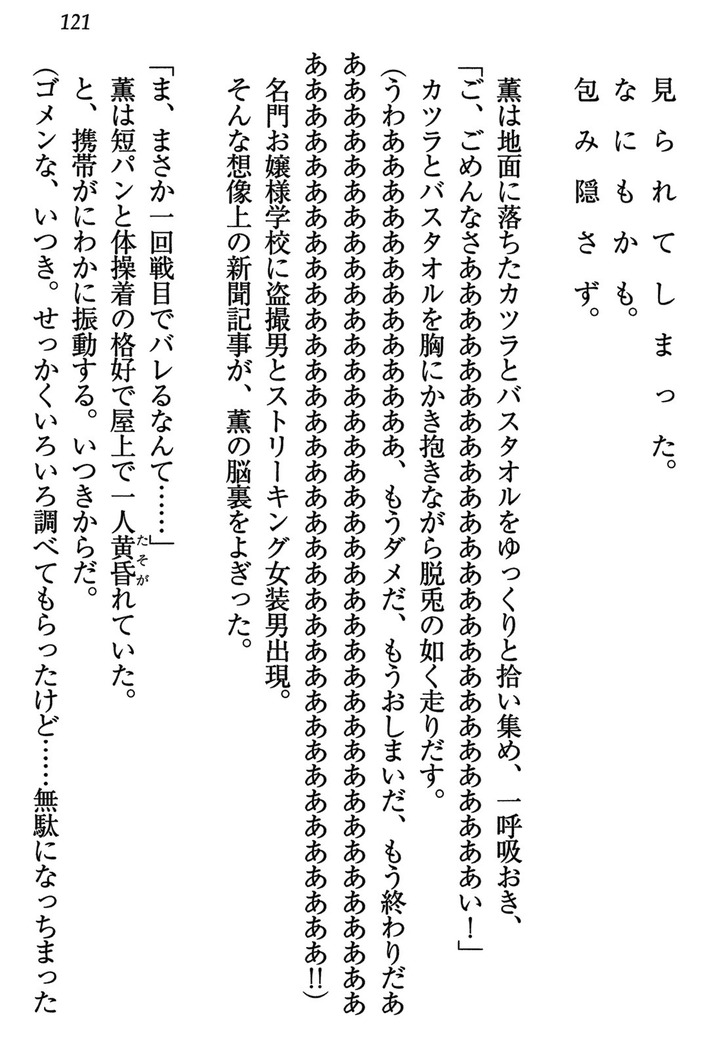 121
見られてしまった。
なにもかも。
包み隠さず。
薫は地面に落ちたカツラとバスタオルをゆっくりと拾い集め、一呼吸おき、
「ご、ごめんなさあああああああああああああああああああああああああああい！」
カツラとバスタオルを胸にかき抱きながら脱兎の如く走りだす。
（うわあああああああああああああああ、もうダメだ、もうおしまいだ、もう終わりだあ
あああああああああああああああああああああああああああああああああああああ
ああああああああああああああああああああああああああああああああああああ!!）
名門お嬢様学校に盗撮男とストリーキング女装男出現。
そんな想像上の新聞記事が、薫の脳裏をよぎった。
「ま、まさか一回戦目でバレるなんて……」
薫は短パンと体操着の格好で屋上で一人黄昏たそがれていた。
と、携帯がにわかに振動する。いつきからだ。
（ゴメンな、いつき。せっかくいろいろ調べてもらったけど……無駄になっちまった